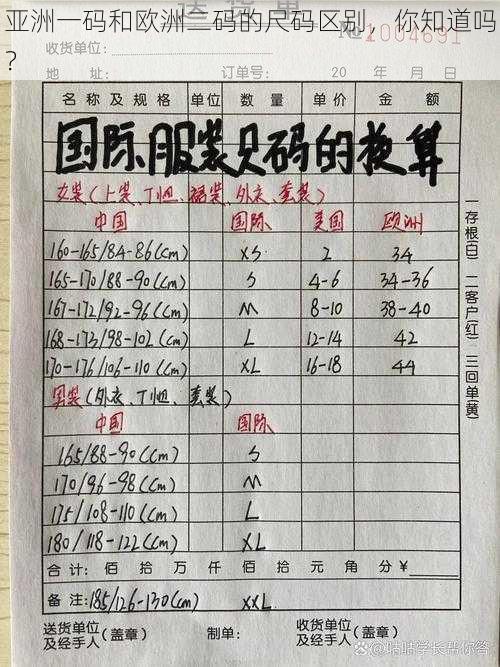 亚洲一码和欧洲二码的尺码区别，你知道吗
?
送货单
收货单位: № 1004691
地址: 订单号: 20 年 月 日
名称及规格 单位 数量 单价 金额
国际服装尺码的换算
女装(上装、T恤、裙装、外衣、套装)
中国 国际 美国 欧洲
160-165/84-86(cm) XS 2 34
165-170/88-90(cm) S 4-6 34-36
167-172/92-96(cm) M 8-10 38-40
168-173/98-102(cm) L 12-14 42
170-176/106-110(cm) XL 16-18 44
男装(外衣、T恤、套装)
中国 国际
165/88-90(cm) S
170/96-98(cm) M
175/108-110(cm) L
180/118-122(cm) XL
合计: 佰 拾 万 仟 佰 拾 元 角 分 ¥
备注: 185/126-130(cm) XXL
送货单位及经手人(盖章) 制单: 收货单位及经手人(盖章)
一存根(白) 二客户(红) 三回单(黄)